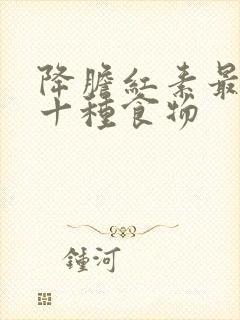 降膽紅素最
十種食物
鍾河